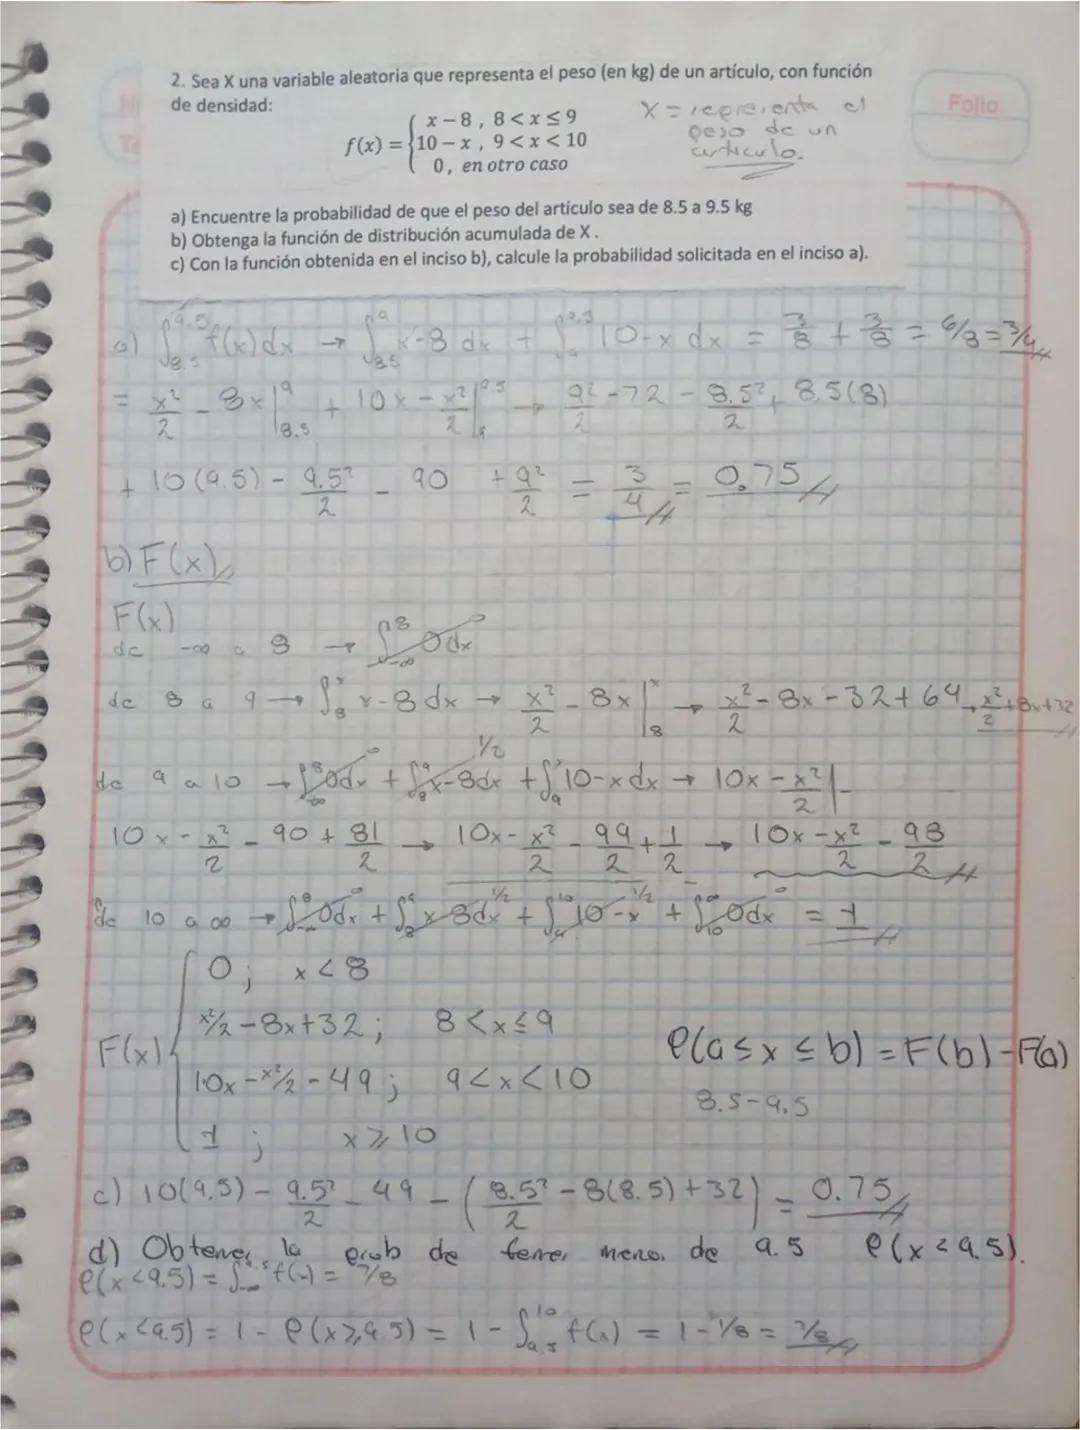 2. Sea X una variable aleatoria que representa el peso (en kg) de un artículo, con función
de densidad:
x = representa el
peso de un
articulo.
Folio
f(x) = { x − 8 , 8 < x ≤ 9
10 − x , 9 < x < 10
0, en otro caso
a) Encuentre la probabilidad de que el peso del artículo sea de 8.5 a 9.5 kg
b) Obtenga la función de distribución acumulada de X .
c) Con la función obtenida en el inciso b), calcule la probabilidad solicitada en el inciso a).
a) ∫8.5^9.5 f(x)dx → ∫8.5^9 x-8 dx + ∫9^9.5 10-x dx = 3/8 + 3/8 = 6/8 = 3/4
= x²/2 - 8x |8.5^9 + 10x - x²/2 |9^9.5 → 9²/2 - 72 - 8.5²/2 + 8.5(8)
+ 10(9.5) - 9.5²/2 - 90 + 9²/2 = 3/4 = 0.75
b) F(x)
F(x)
de -∞ a 8 → ∫-∞^8 0dx 0
de 8 a 9 → ∫8^x x-8 dx → x²/2 - 8x |8^x → x²/2 - 8x - 32 + 64 → x²/2 + 8x + 32
de 9 a 10 → ∫-∞^8 0dx 0 + ∫8^9 x-8dx 1/2 + ∫9^x 10-x dx → 10x - x²/2 |
10x - x²/2 - 90 + 81/2 → 10x - x²/2 - 99/2 + 1/2 → 10x - x²/2 - 98/2
de 10 a ∞ → ∫-∞^8 0dx 0 + ∫8^9 x-8dx 1/2 + ∫9^10 10-x 1/2 + ∫10^∞ 0dx 0 = 1
F(x) { 0; x < 8
x²/2 - 8x + 32; 8 < x ≤ 9
10x - x²/2 - 49; 9 < x < 10
1; x ≥ 10
P(a ≤ x ≤ b) = F(b) - F(a)
8.5 - 9.5
c) 10(9.5) - 9.5²/2 - 49 - (8.5²/2 - 8(8.5) + 32) = 0.75
d) Obtener la prob de tener menos de 9.5 P(x < 9.5).
P(x < 9.5) = ∫-∞^9.5 f(x) = 7/8
P(x < 9.5) = 1 - P(x ≥ 9.5) = 1 - ∫9.5^10 f(x) = 1 - 1/8 = 7/8